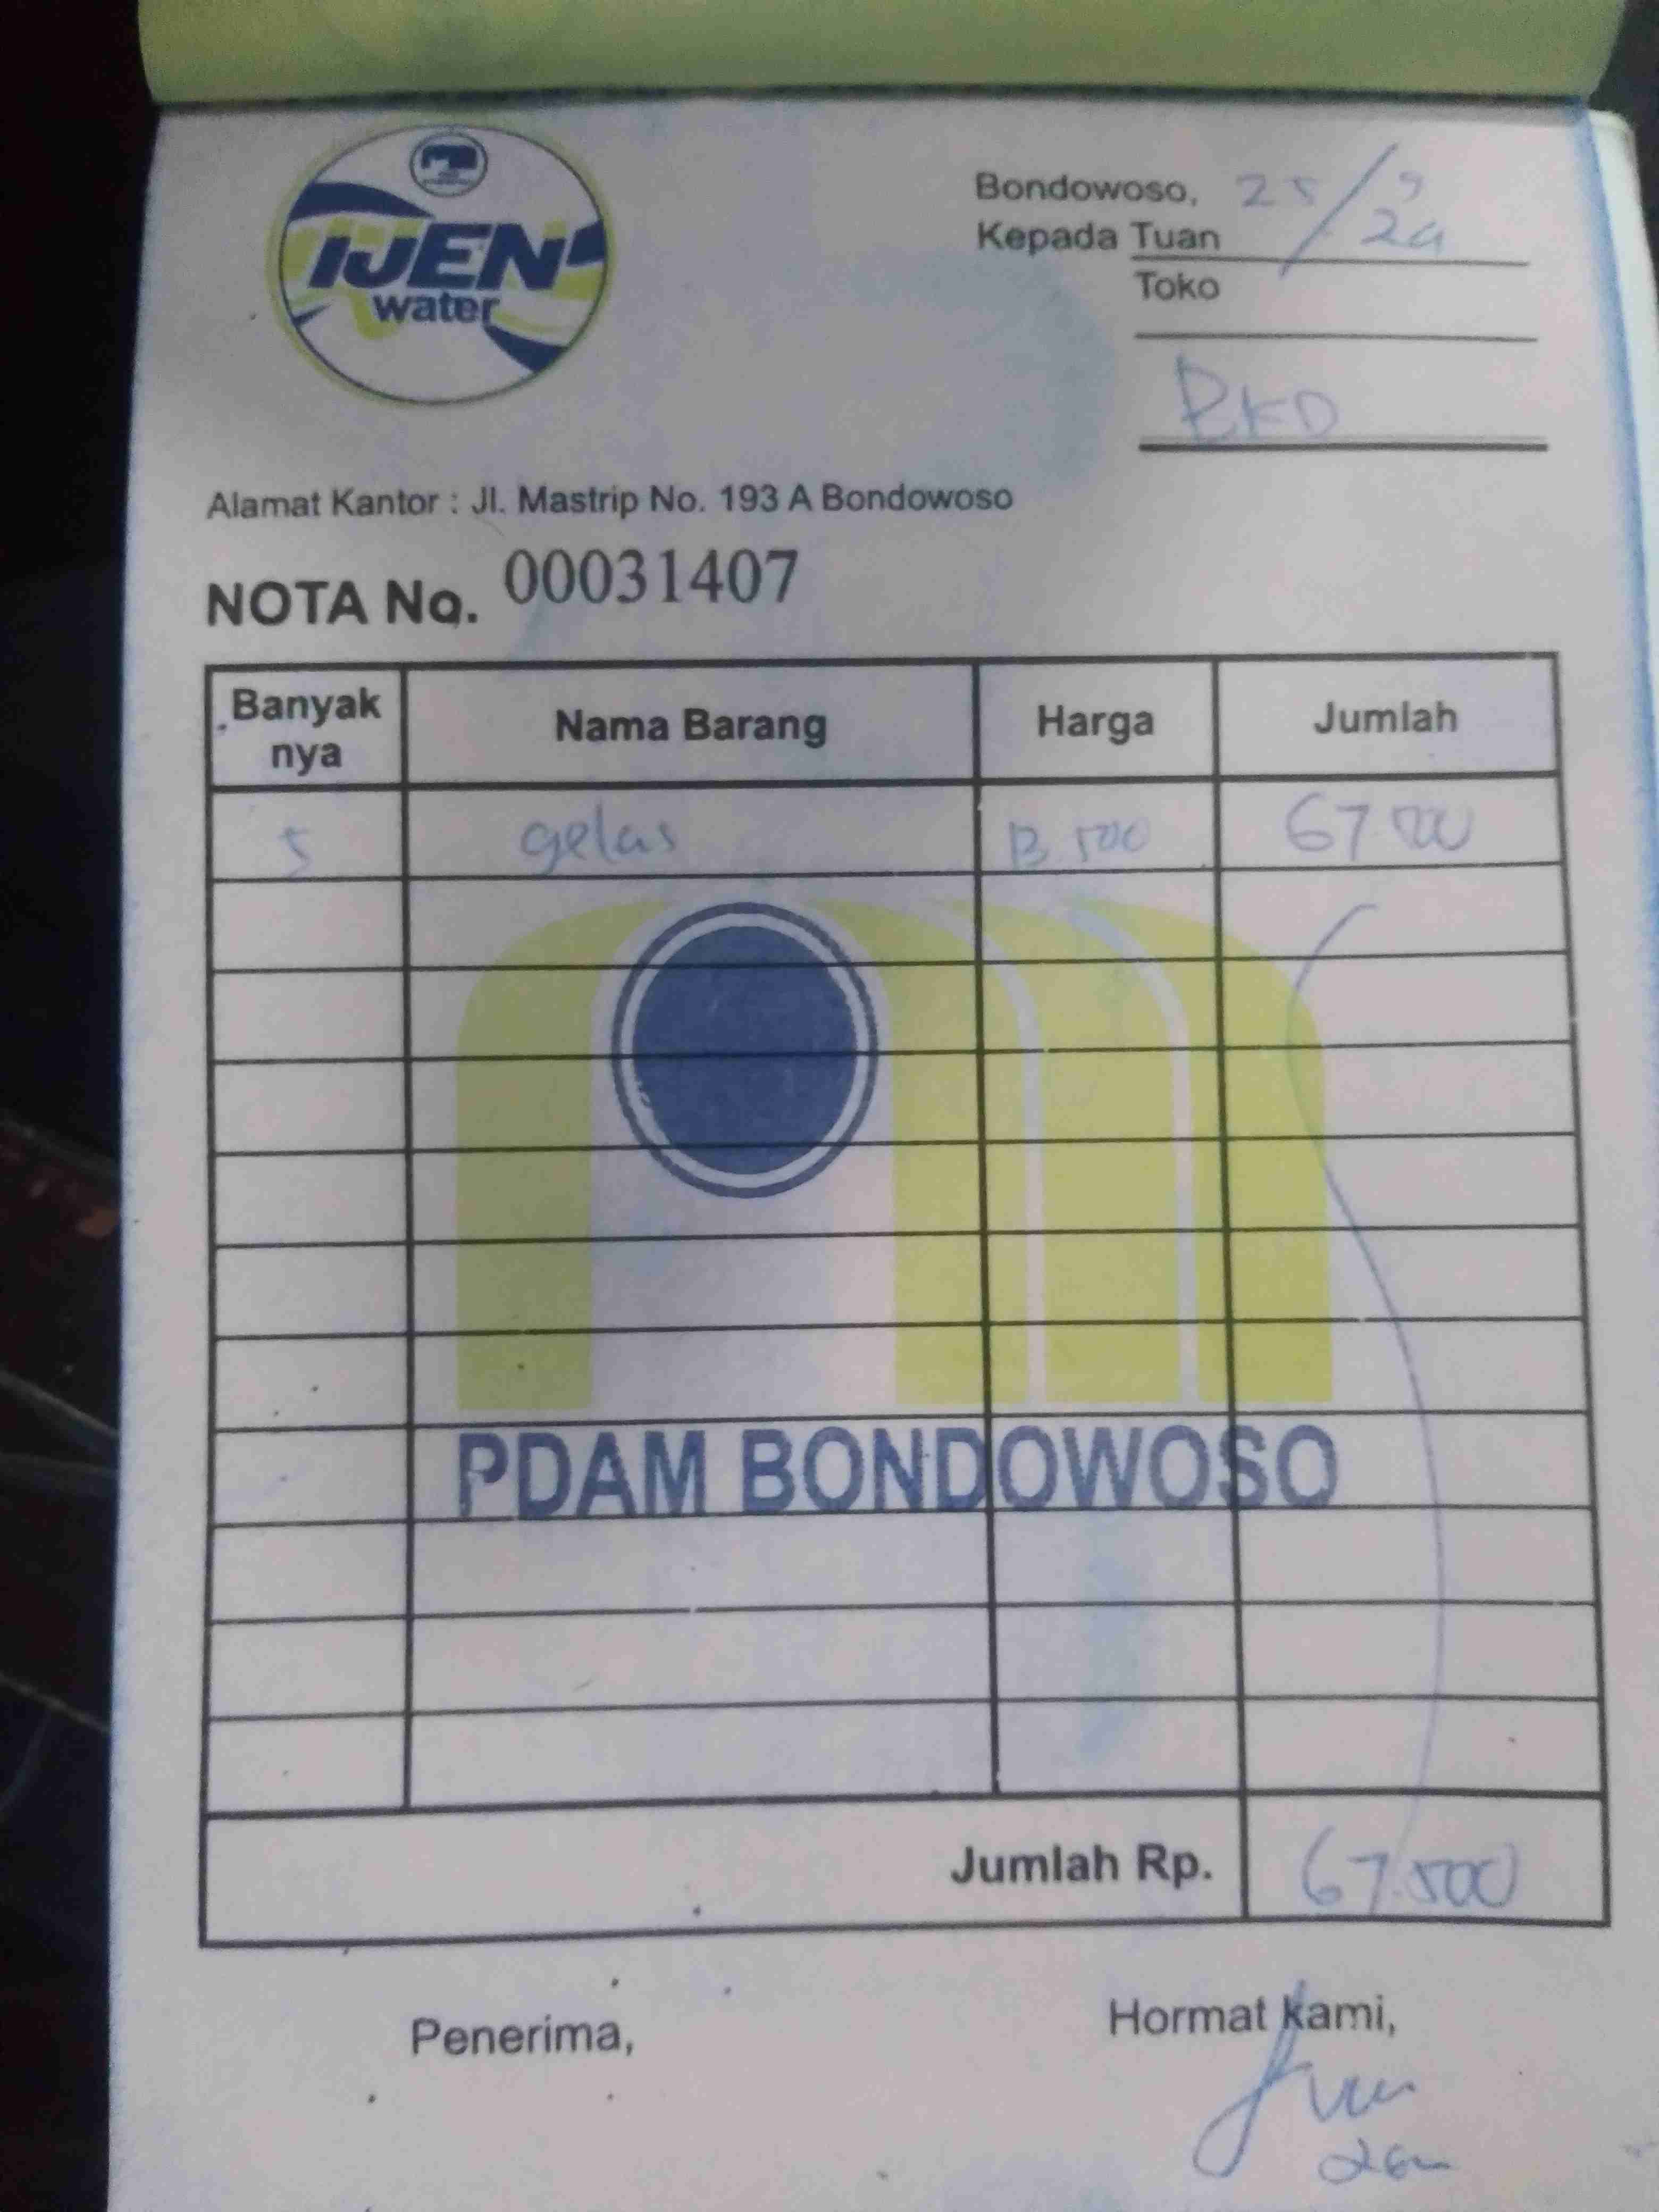 IJEN
water
Bondowoso, 25/9
Kepada Tuan 24
Toko
BKD
Alamat Kantor : Jl. Mastrip No. 193 A Bondowoso
NOTA No. 00031407
Banyak nya Nama Barang Harga Jumlah
5 gelas 13.500 67.500
PDAM BONDOWOSO
Jumlah Rp. 67.500
Penerima, Hormat kami,